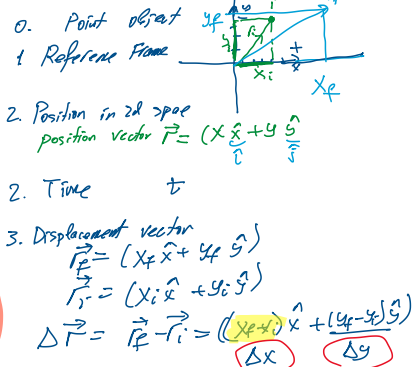 0. Point object
y_f
1 Reference Frame
x_i
x_f
2. Position in 2d spae
position vector r⃗ = (x x̂ + y ŷ
î ĵ
2. Time t
3. Displacement vector
r⃗_f = (x_f x̂ + y_f ŷ)
r⃗_i = (x_i x̂ + y_i ŷ)
Δr⃗ = r⃗_f - r⃗_i = ((x_f-x_i) x̂ + (y_f-y_i) ŷ)
Δx Δy